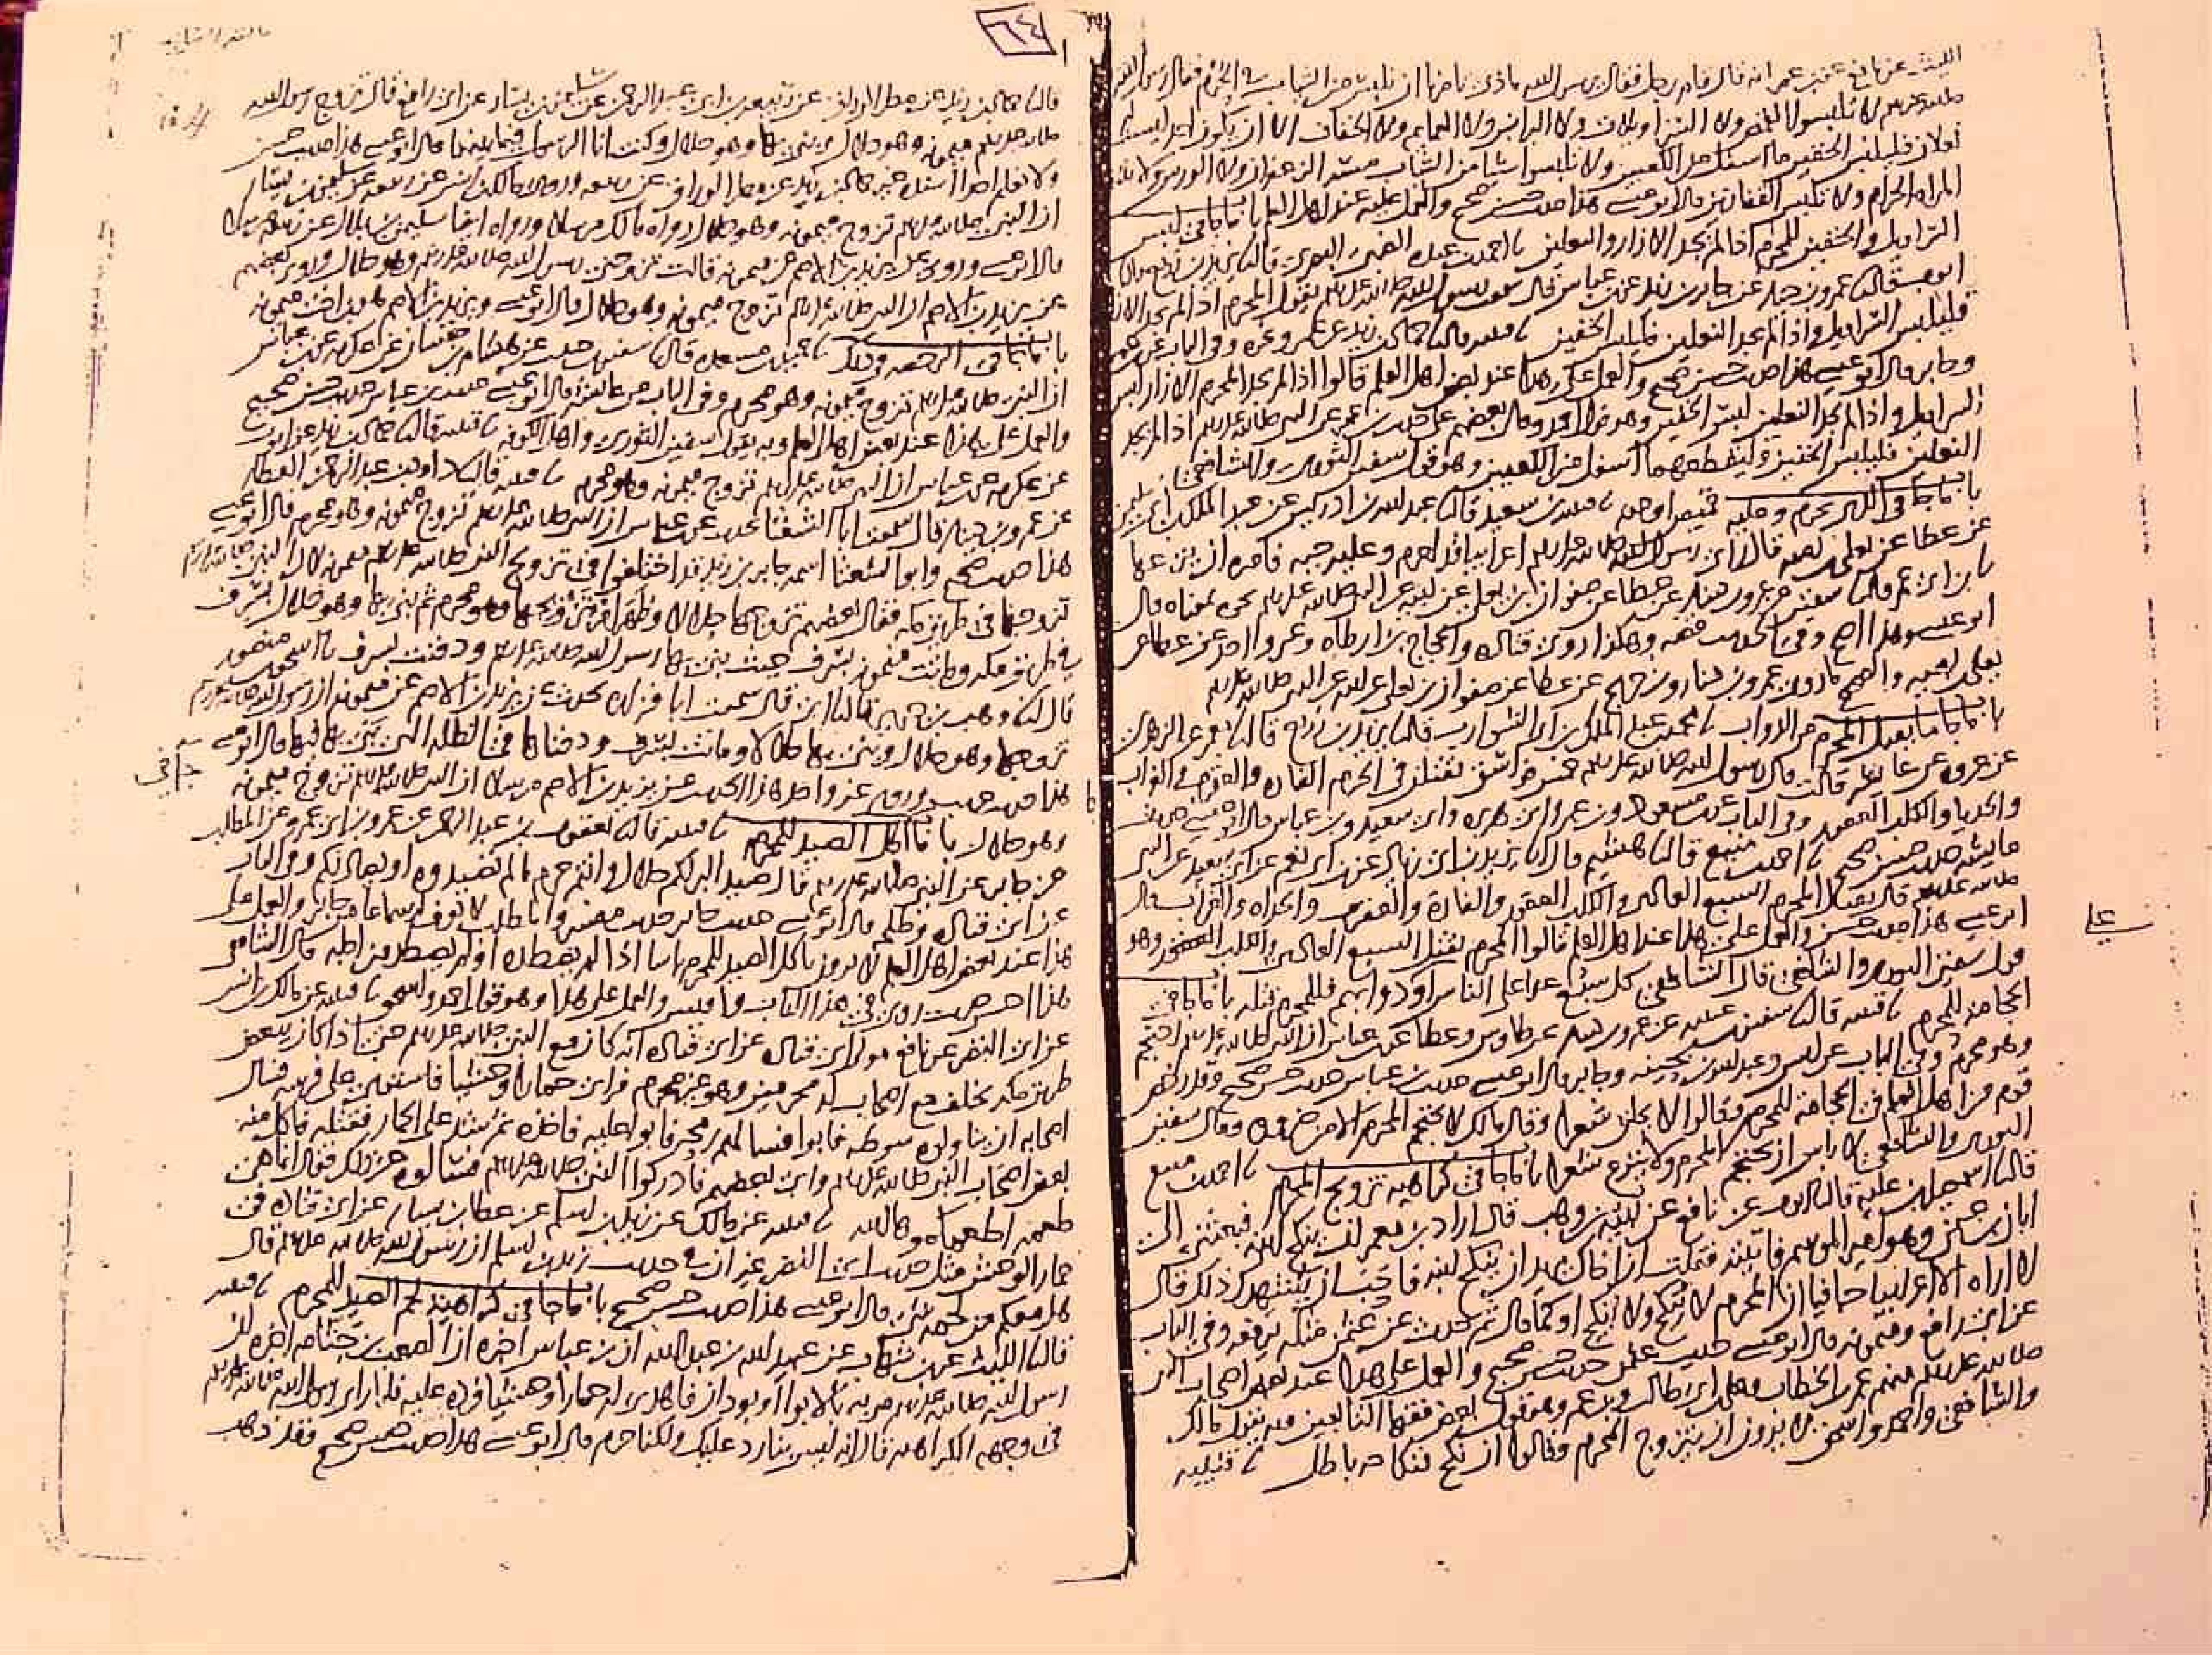 الليث عن نافع عن بن عمر انه قال قام رجل فقال يرسول الله ماذى تامرنا ان نلبس من الثياب في الحرم فقال رسول الله
صلى الله عليه وسلم لا تلبسوا القمص ولا السراويلات ولا البرانس ولا العمايم ولا الخفاف الا ان يكون احد ليست له
نعلان فليلبس الخفين ما اسفل من الكعبين ولا تلبسوا شيا من الثياب مسه الزعفران ولا الورس ولا تنتقب
المراه الحرام ولا تلبس القفازين قال ابو عيسى هذا حديث حسن صحيح والعمل عليه عند اهل العلم باب ما جا في لبس
السراويل والخفين للمحرم اذا لم يجد الازار والنعلين نا احمد بن عبده الضبي البصري قال نا يزيد بن زريع نا
ايوب قال نا عمرو بن دينار عن جابر بن زيد عن بن عباس قال سمعت رسول الله صلى الله عليه وسلم يقول المحرم اذا لم يجد الازار
فليلبس السراويل واذا لم يجد النعلين فليلبس الخفين نا قتيبه قال نا حماد بن زيد عن عمرو نحوه وفي الباب عن بن عمر
وجابر قال ابو عيسى هذا حديث حسن صحيح والعمل على هذا عند بعض اهل العلم قالوا اذا لم يجد المحرم الازار لبس
السراويل واذا لم يجد النعلين لبس الخفين وهو قول احمد وقال بعضهم على حديث بن عمر عن النبي صلى الله عليه وسلم اذا لم يجد
النعلين فليلبس الخفين وليقطعهما اسفل من الكعبين وهو قول سفين الثوري والشافعي
باب ما جا في الذي يحرم وعليه قميص او جبه نا قتيبه بن سعيد قال نا عبد الله بن ادريس عن عبد الملك بن ابي سليمن
عن عطا عن يعلى بن اميه قال راى رسول الله صلى الله عليه وسلم اعرابيا قد احرم وعليه جبه فامره ان ينزعها
نا بن ابي عمر قال نا سفين عن عمرو بن دينار عن عطا عن صفوان بن يعلى عن ابيه عن النبي صلى الله عليه وسلم نحوه بمعناه قال
ابو عيسى وهذا اصح وفي الحديث قصه وهكذا روى قتاده والحجاج بن ارطاه وغير واحد عن عطا عن
يعلى بن اميه والصحيح ما روى عمرو بن دينار وبن جريج عن عطا عن صفوان بن يعلى عن ابيه عن النبي صلى الله عليه وسلم
باب ما جا ما يقتل المحرم من الدواب نا محمد بن عبد الملك بن ابي الشوارب قال نا يزيد بن زريع قال نا معمر عن الزهري
عن عروه عن عايشه قالت قال رسول الله صلى الله عليه وسلم خمس فواسق يقتلن في الحرم الفاره والعقرب والغراب
والحديا والكلب العقور وفي الباب عن بن مسعود وبن عمر وابي هريره وابي سعيد وبن عباس قال ابو عيسى حديث
عايشه حديث حسن صحيح نا احمد بن منيع قال نا هشيم قال نا يزيد بن ابي زياد عن بن ابي نعم عن ابي سعيد عن النبي
صلى الله عليه وسلم قال يقتل المحرم السبع العادي والكلب العقور والفاره والعقرب والحداه والغراب قال
ابو عيسى هذا حديث حسن والعمل على هذا عند اهل العلم قالوا المحرم يقتل السبع العادي والكلب العقور وهو
قول سفين الثوري والشافعي قال الشافعي كل سبع عدا على الناس او دوابهم فللمحرم قتله باب ما جا في
الحجامه للمحرم نا قتيبه قال نا سفين بن عيينه عن عمرو بن دينار عن طاوس وعطا عن بن عباس ان النبي صلى الله عليه وسلم احتجم
وهو محرم وفي الباب عن انس وعبد الله بن بحينه وجابر قال ابو عيسى حديث بن عباس حديث حسن صحيح وقد رخص
قوم من اهل العلم في الحجامه للمحرم وقالوا لا يحلق شعرا وقال مالك لا يحتجم المحرم الا من ضروره وقال سفين
الثوري والشافعي لا باس ان يحتجم المحرم ولا ينزع شعرا باب ما جا في كراهيه تزويج المحرم نا احمد بن منيع
قال نا اسمعيل بن عليه قال نا ايوب عن نافع عن نبيه بن وهب قال اراد بن معمر ان ينكح ابنه فبعثني الى
ابان بن عثمن وهو امير الموسم فاتيته فقلت ان اخاك يريد ان ينكح ابنه فاحب ان يشهدك ذلك قال
لا اراه الا اعرابيا جافيا ان المحرم لا ينكح ولا ينكح او كما قال ثم حدث عن عثمن مثله يرفعه وفي الباب
عن ابي رافع وميمونه قال ابو عيسى حديث عثمن حديث حسن صحيح والعمل على هذا عند بعض اصحاب النبي
صلى الله عليه وسلم منهم عمر بن الخطاب وعلي بن ابي طالب وبن عمر وهو قول بعض فقها التابعين وبه يقول مالك
والشافعي واحمد واسحق لا يرون ان يتزوج المحرم وقالوا ان نكح فنكاحه باطل نا قتيبه
على
٦٤
قال نا حماد بن زيد عن مطر الوراق عن ربيعه بن ابي عبد الرحمن عن سليمن بن يسار عن ابي رافع قال تزوج رسول الله
صلى الله عليه وسلم ميمونه وهو حلال وبنى بها وهو حلال وكنت انا الرسول فيما بينهما قال ابو عيسى هذا حديث حسن
ولا نعلم احدا اسنده غير حماد بن زيد عن مطر الوراق عن ربيعه وروى مالك بن انس عن ربيعه عن سليمن بن يسار
ان النبي صلى الله عليه وسلم تزوج ميمونه وهو حلال رواه مالك مرسلا ورواه ايضا سليمن بن بلال عن ربيعه مرسلا
قال ابو عيسى وروي عن يزيد بن الاصم عن ميمونه قالت تزوجني رسول الله صلى الله عليه وسلم وهو حلال وروى بعضهم
عن يزيد بن الاصم ان النبي صلى الله عليه وسلم تزوج ميمونه وهو حلال قال ابو عيسى ويزيد بن الاصم هو بن اخت ميمونه
باب ما جا في الرخصه في ذلك نا حميد بن مسعده قال نا سفين بن حبيب عن هشام بن حسان عن عكرمه عن بن عباس
ان النبي صلى الله عليه وسلم تزوج ميمونه وهو محرم وفي الباب عن عايشه قال ابو عيسى حديث بن عباس حديث حسن صحيح
والعمل على هذا عند بعض اهل العلم وبه يقول سفين الثوري واهل الكوفه نا قتيبه قال نا حماد بن زيد عن ايوب
عن عكرمه عن بن عباس ان النبي صلى الله عليه وسلم تزوج ميمونه وهو محرم نا قتيبه قال نا داود بن عبد الرحمن العطار
عن عمرو بن دينار قال سمعت ابا الشعثا يحدث عن بن عباس ان النبي صلى الله عليه وسلم تزوج ميمونه وهو محرم قال ابو عيسى
هذا حديث صحيح وابو الشعثا اسمه جابر بن زيد اختلفوا في تزويج النبي صلى الله عليه وسلم ميمونه لان النبي صلى الله عليه وسلم
تزوجها في طريق مكه فقال بعضهم تزوجها حلالا وظهر امر تزويجها وهو محرم ثم بنى بها وهو حلال بسرف
في طريق مكه وماتت ميمونه بسرف حيث بنى بها رسول الله صلى الله عليه وسلم ودفنت بسرف نا اسحق بن منصور
قال نا وهب بن جرير قال نا ابي قال سمعت ابا فزاره يحدث عن يزيد بن الاصم عن ميمونه ان رسول الله صلى الله عليه وسلم
تزوجها وهو حلال وبنى بها حلالا وماتت بسرف ودفناها في الظله التي بنى بها فيها قال ابو عيسى
هذا حديث غريب وروى غير واحد هذا الحديث عن يزيد بن الاصم مرسلا ان النبي صلى الله عليه وسلم تزوج ميمونه
وهو حلال باب ما جا في اكل الصيد للمحرم نا قتيبه قال نا يعقوب بن عبد الرحمن عن عمرو بن ابي عمرو عن المطلب
عن جابر عن النبي صلى الله عليه وسلم قال صيد البر لكم حلال وانتم حرم ما لم تصيدوه او يصاد لكم وفي الباب
عن ابي قتاده وطلحه قال ابو عيسى حديث جابر حديث مفسر والمطلب لا نعرف له سماعا من جابر والعمل على
هذا عند بعض اهل العلم لا يرون باكل الصيد للمحرم باسا اذا لم يصطده او لم يصطد من اجله قال الشافعي
هذا احسن حديث روي في هذا الباب وافسر والعمل على هذا وهو قول احمد واسحق نا قتيبه عن مالك بن انس
عن ابي النضر عن نافع مولى ابي قتاده عن ابي قتاده انه كان مع النبي صلى الله عليه وسلم حتى اذا كان ببعض
طريق مكه تخلف مع اصحاب له محرمين وهو غير محرم فراى حمارا وحشيا فاستوى على فرسه فسال
اصحابه ان يناولوه سوطه فابوا فسالهم رمحه فابوا عليه فاخذه ثم شد على الحمار فقتله فاكل منه
بعض اصحاب النبي صلى الله عليه وسلم وابى بعضهم فادركوا النبي صلى الله عليه وسلم فسالوه عن ذلك فقال انما هي
طعمه اطعمكموها الله نا قتيبه عن مالك عن زيد بن اسلم عن عطا بن يسار عن ابي قتاده في
حمار الوحش مثل حديث ابي النضر غير ان في حديث زيد بن اسلم ان رسول الله صلى الله عليه وسلم قال
هل معكم من لحمه شي قال ابو عيسى هذا حديث حسن صحيح باب ما جا في كراهيه لحم الصيد للمحرم نا قتيبه
قال نا الليث عن بن شهاب عن عبيد الله بن عبد الله ان بن عباس اخبره ان الصعب بن جثامه اخبره ان
رسول الله صلى الله عليه وسلم مر به بالابوا او بودان فاهدى له حمارا وحشيا فرده عليه فلما راى رسول الله صلى الله عليه وسلم
في وجهه الكراهيه قال انه ليس بنا رد عليك ولكنا حرم قال ابو عيسى هذا حديث حسن صحيح وقد ذهب